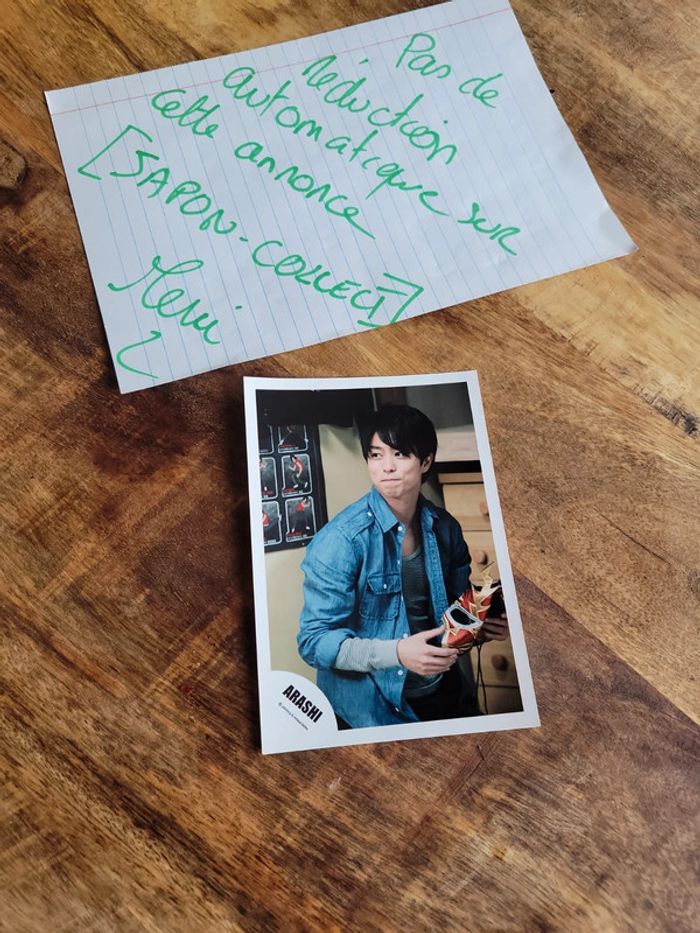 Pas de
réduction
automatique sur
cette annonce
[JAPON-COLLECT]
Merci
ARASHI